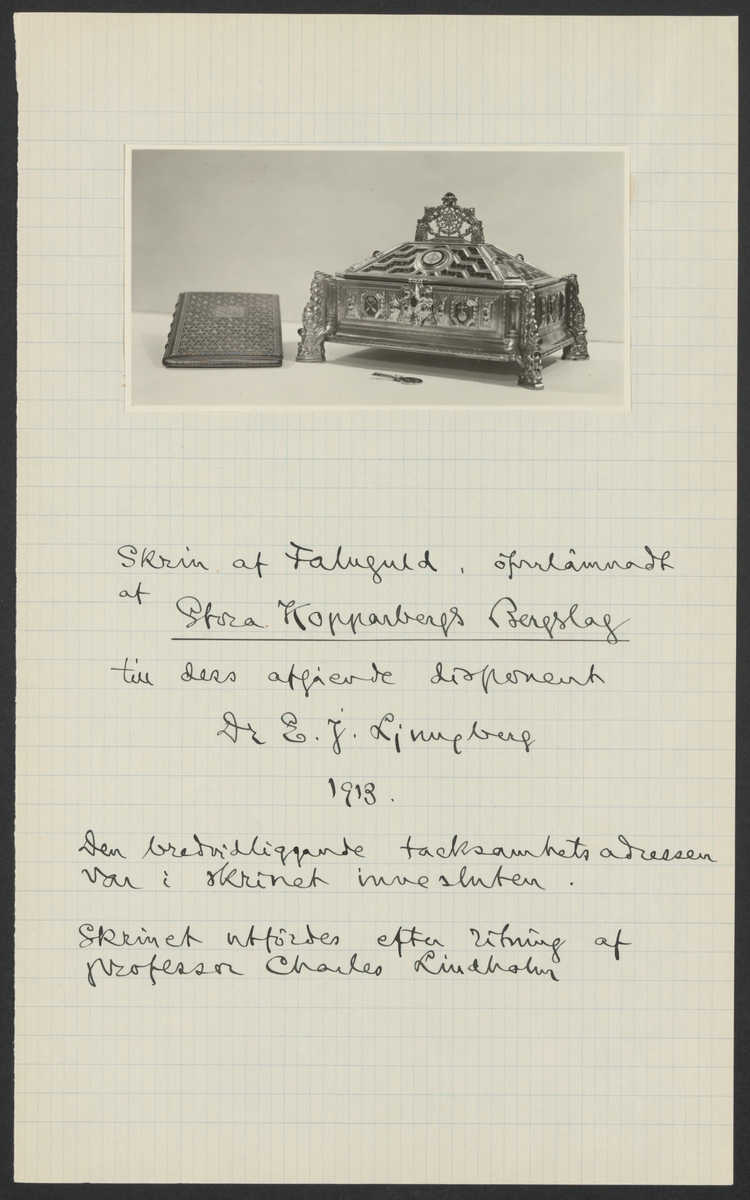 Skrin af Faluguld, öfverlämnadt
af
Stora Kopparbergs Bergslag
till dess afgående disponent
Dr E. J. Ljungberg
1913.
Den bredvidliggande tacksamhetsadressen
var i skrinet innesluten.
Skrinet utfördes efter ritning af
professor Charles Lindholm